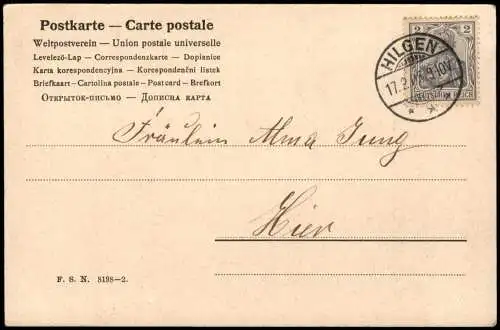 Postkarte — Carte postale
Weltpostverein — Union postale universelle
Levelező-Lap — Correspondenzkarte — Dopisnice
Karta korespondencyjna — Korespondenční lístek
Briefkaart - Cartolina postale - Post card - Brefkort
Открытое-письмо — Дописна карта
2 2
HILGEN
17.2. 9-10V.
DEUTSCHES REICH
Fräulein Alma Jung
Hier
F. S. N. 8198-2.